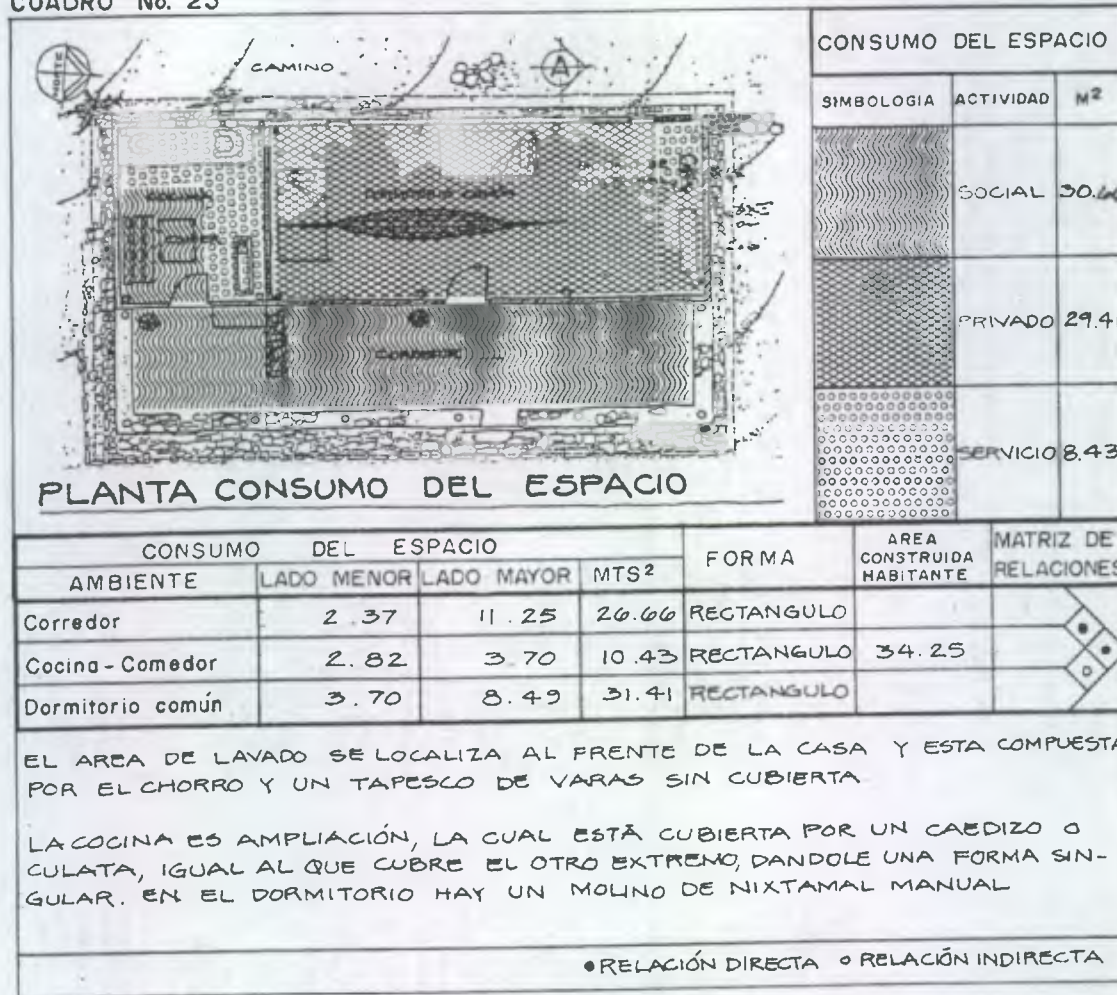 CUADRO No. 23
NORTE
CAMINO
A
CORREDOR
PLANTA CONSUMO DEL ESPACIO
CONSUMO DEL ESPACIO
SIMBOLOGIA ACTIVIDAD M²
SOCIAL
PRIVADO
SERVICIO 8.43
CONSUMO DEL ESPACIO FORMA AREA CONSTRUIDA HABITANTE MATRIZ DE RELACIONES
AMBIENTE LADO MENOR LADO MAYOR MTS²
Corredor 2.37 11.25 26.66 RECTANGULO
Cocina - Comedor 2.82 3.70 10.43 RECTANGULO 34.25
Dormitorio común 3.70 8.49 31.41 RECTANGULO
EL AREA DE LAVADO SE LOCALIZA AL FRENTE DE LA CASA Y ESTA COMPUESTA
POR EL CHORRO Y UN TAPESCO DE VARAS SIN CUBIERTA
LA COCINA ES AMPLIACIÓN, LA CUAL ESTÁ CUBIERTA POR UN CAEDIZO O
CULATA, IGUAL AL QUE CUBRE EL OTRO EXTREMO, DANDOLE UNA FORMA SIN-
GULAR. EN EL DORMITORIO HAY UN MOLINO DE NIXTAMAL MANUAL
• RELACIÓN DIRECTA ° RELACIÓN INDIRECTA